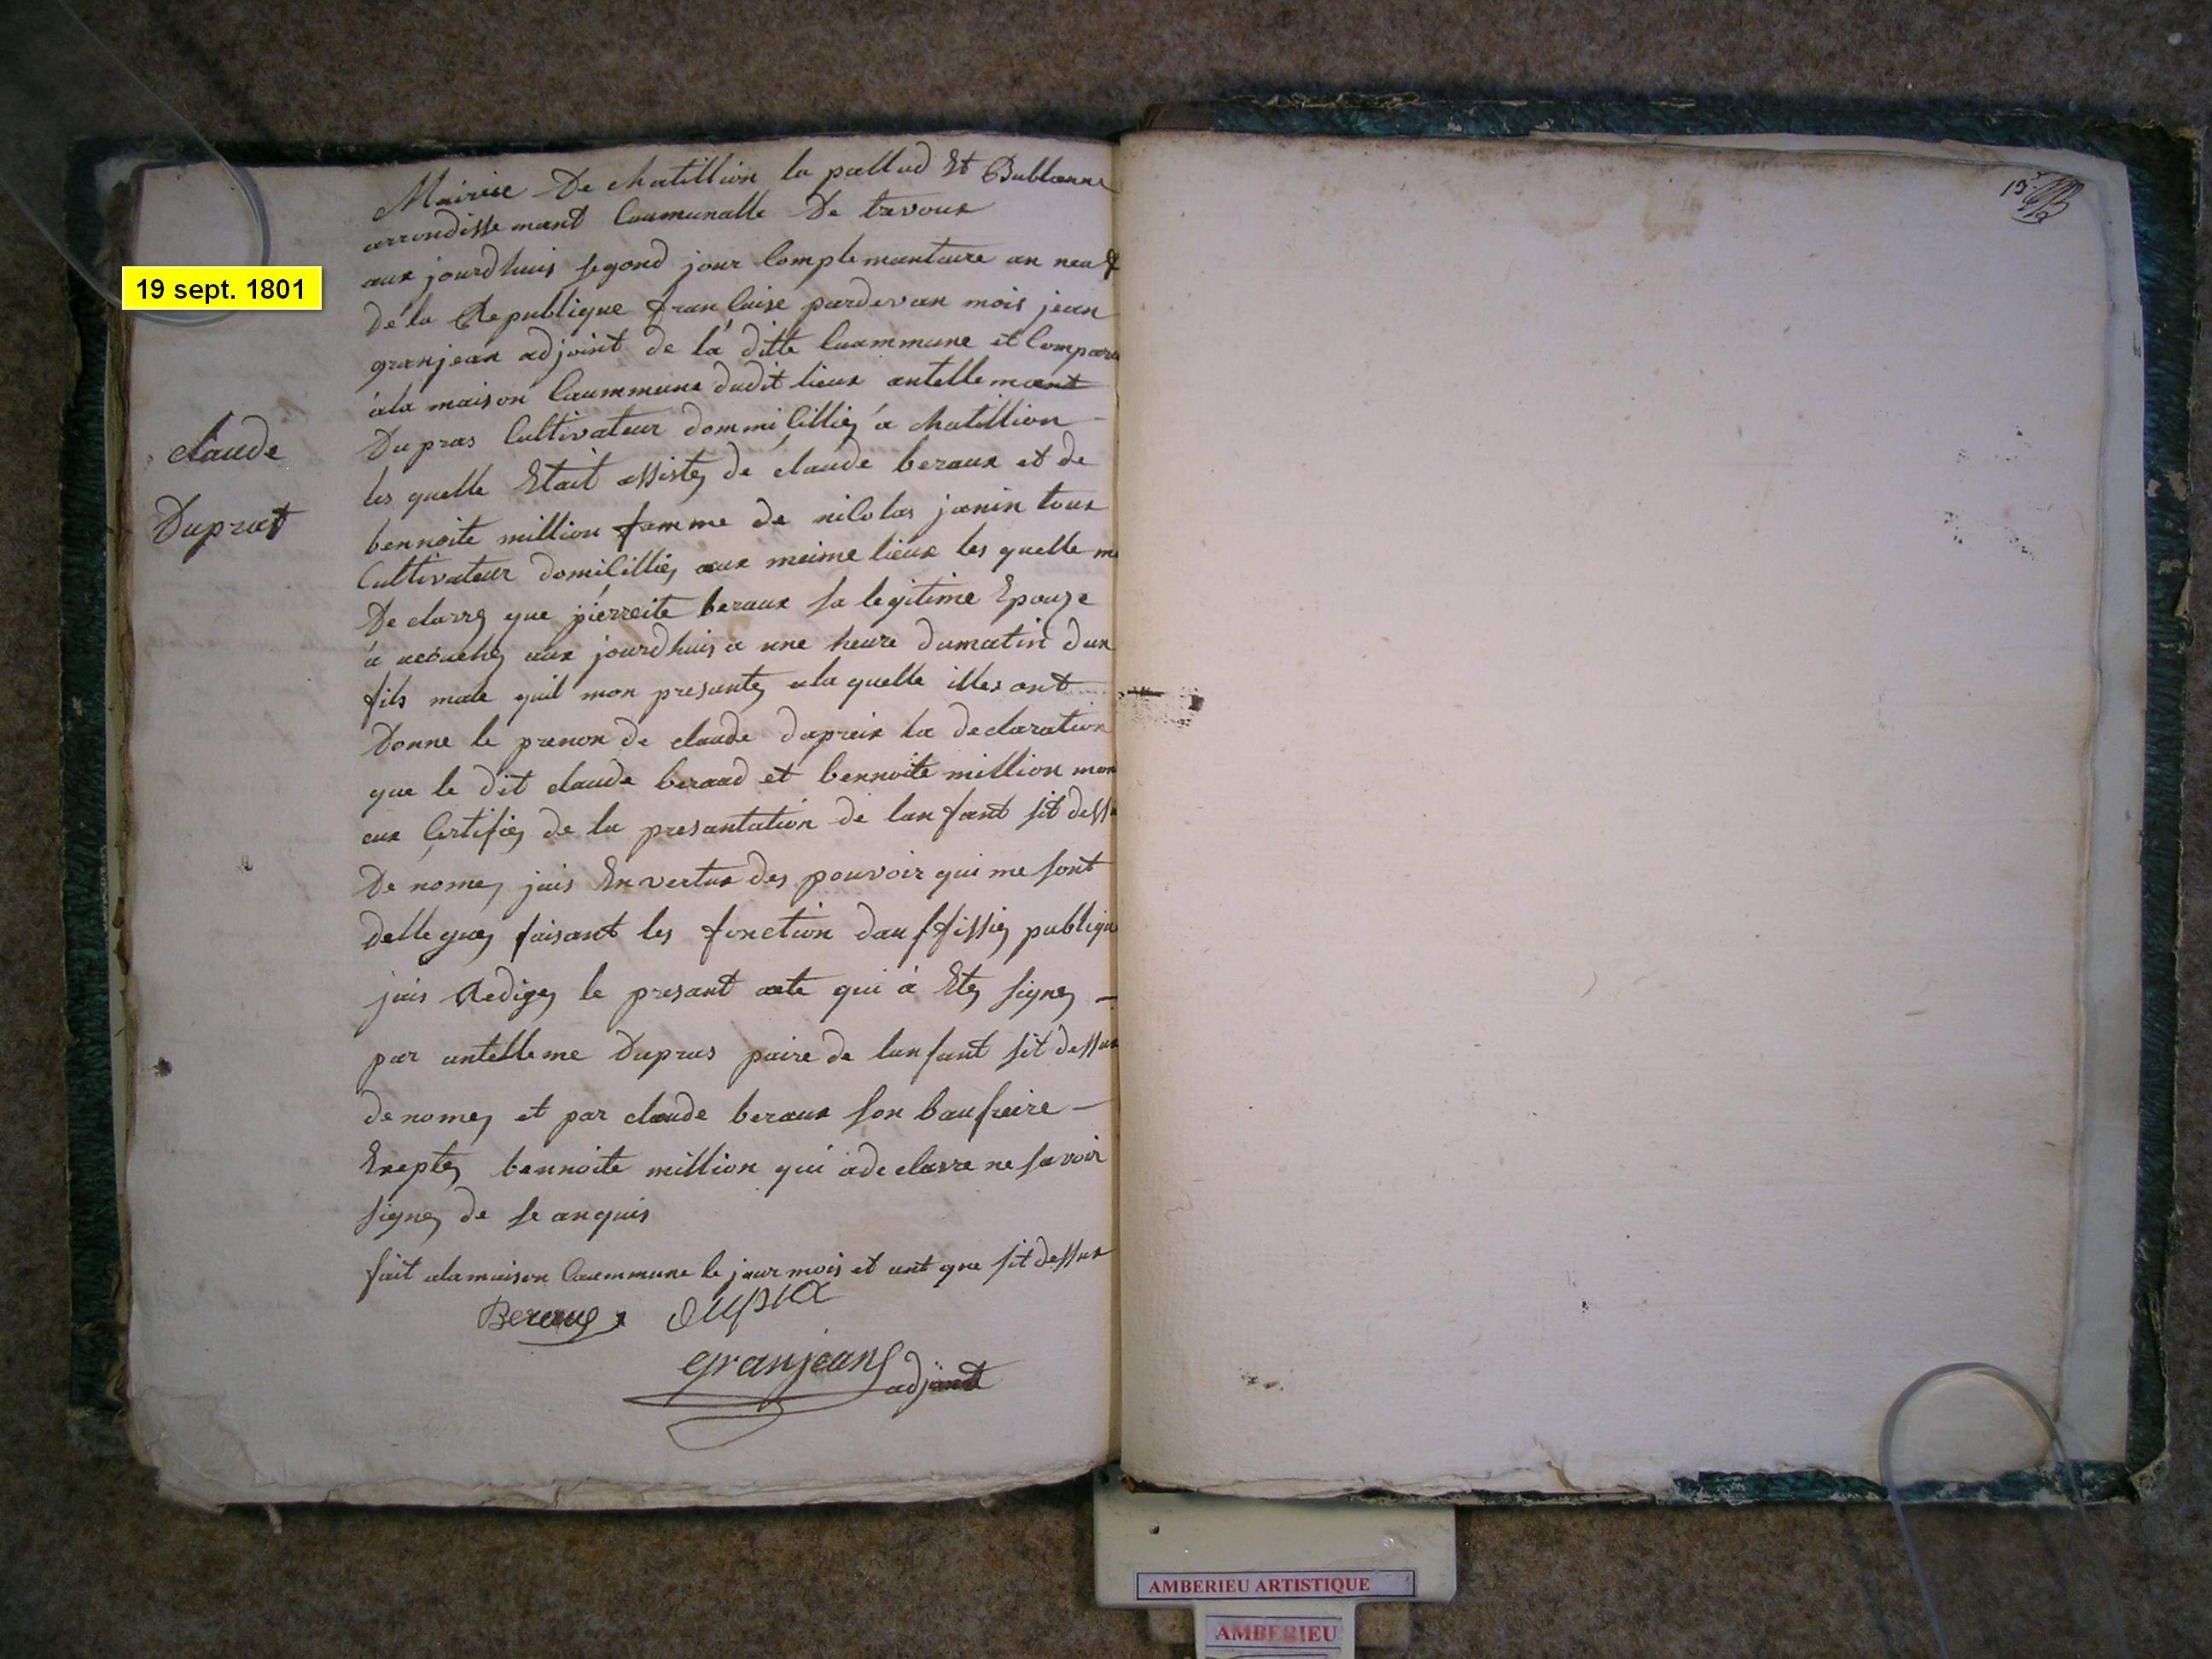 Mairie De chatillion la pallud Et Bublanne
arrondisse mant Caumunalle De trevoux
aux jourdhuis segond jour Complemantaire an neuf
19 sept. 1801
dela Republique francaise pardevan mois jean
granjean adjoint de la ditte Caummune et Comparu
ala maison Caummune dudit lieux antellemant
Dupras Cultivateur dommicilliez a chatillion
claude
les quelle Etait assistez de claude beraux et de
Duprat
bennoite million famme de nicolas janin toux
Cultivateur domicilliez aux meime lieux les quelle
De clarrez que pierreite beraux sa legitime Epouze
a acouchez aux jourdhuis a une heure dumatin dun
fils male quil mon presantez ala quelle illes ont
Donne le prenon de claude dapreix la declaration
que le dit claude beraud et bennoite million mon
eux Certifiez de la presantation de lanfant sit dessu
De nomez jais En vertux des pouvoir qui me sont
delleguez faisant les fonction dauffissiez publique
jais Redigez le presant acte qui a Etez signez
par antelleme Dupras paire de lanfant sit dessux
denomez et par claude beraux son baufreire
Exeptez bennoite million qui adeclarre ne savoir
signez de se anquis
fait alamaison Caummune le jour mois et ant que sit dessux
Beraux Dupra
granjean
adjoint
13
AMBERIEU ARTISTIQUE
AMBERIEU